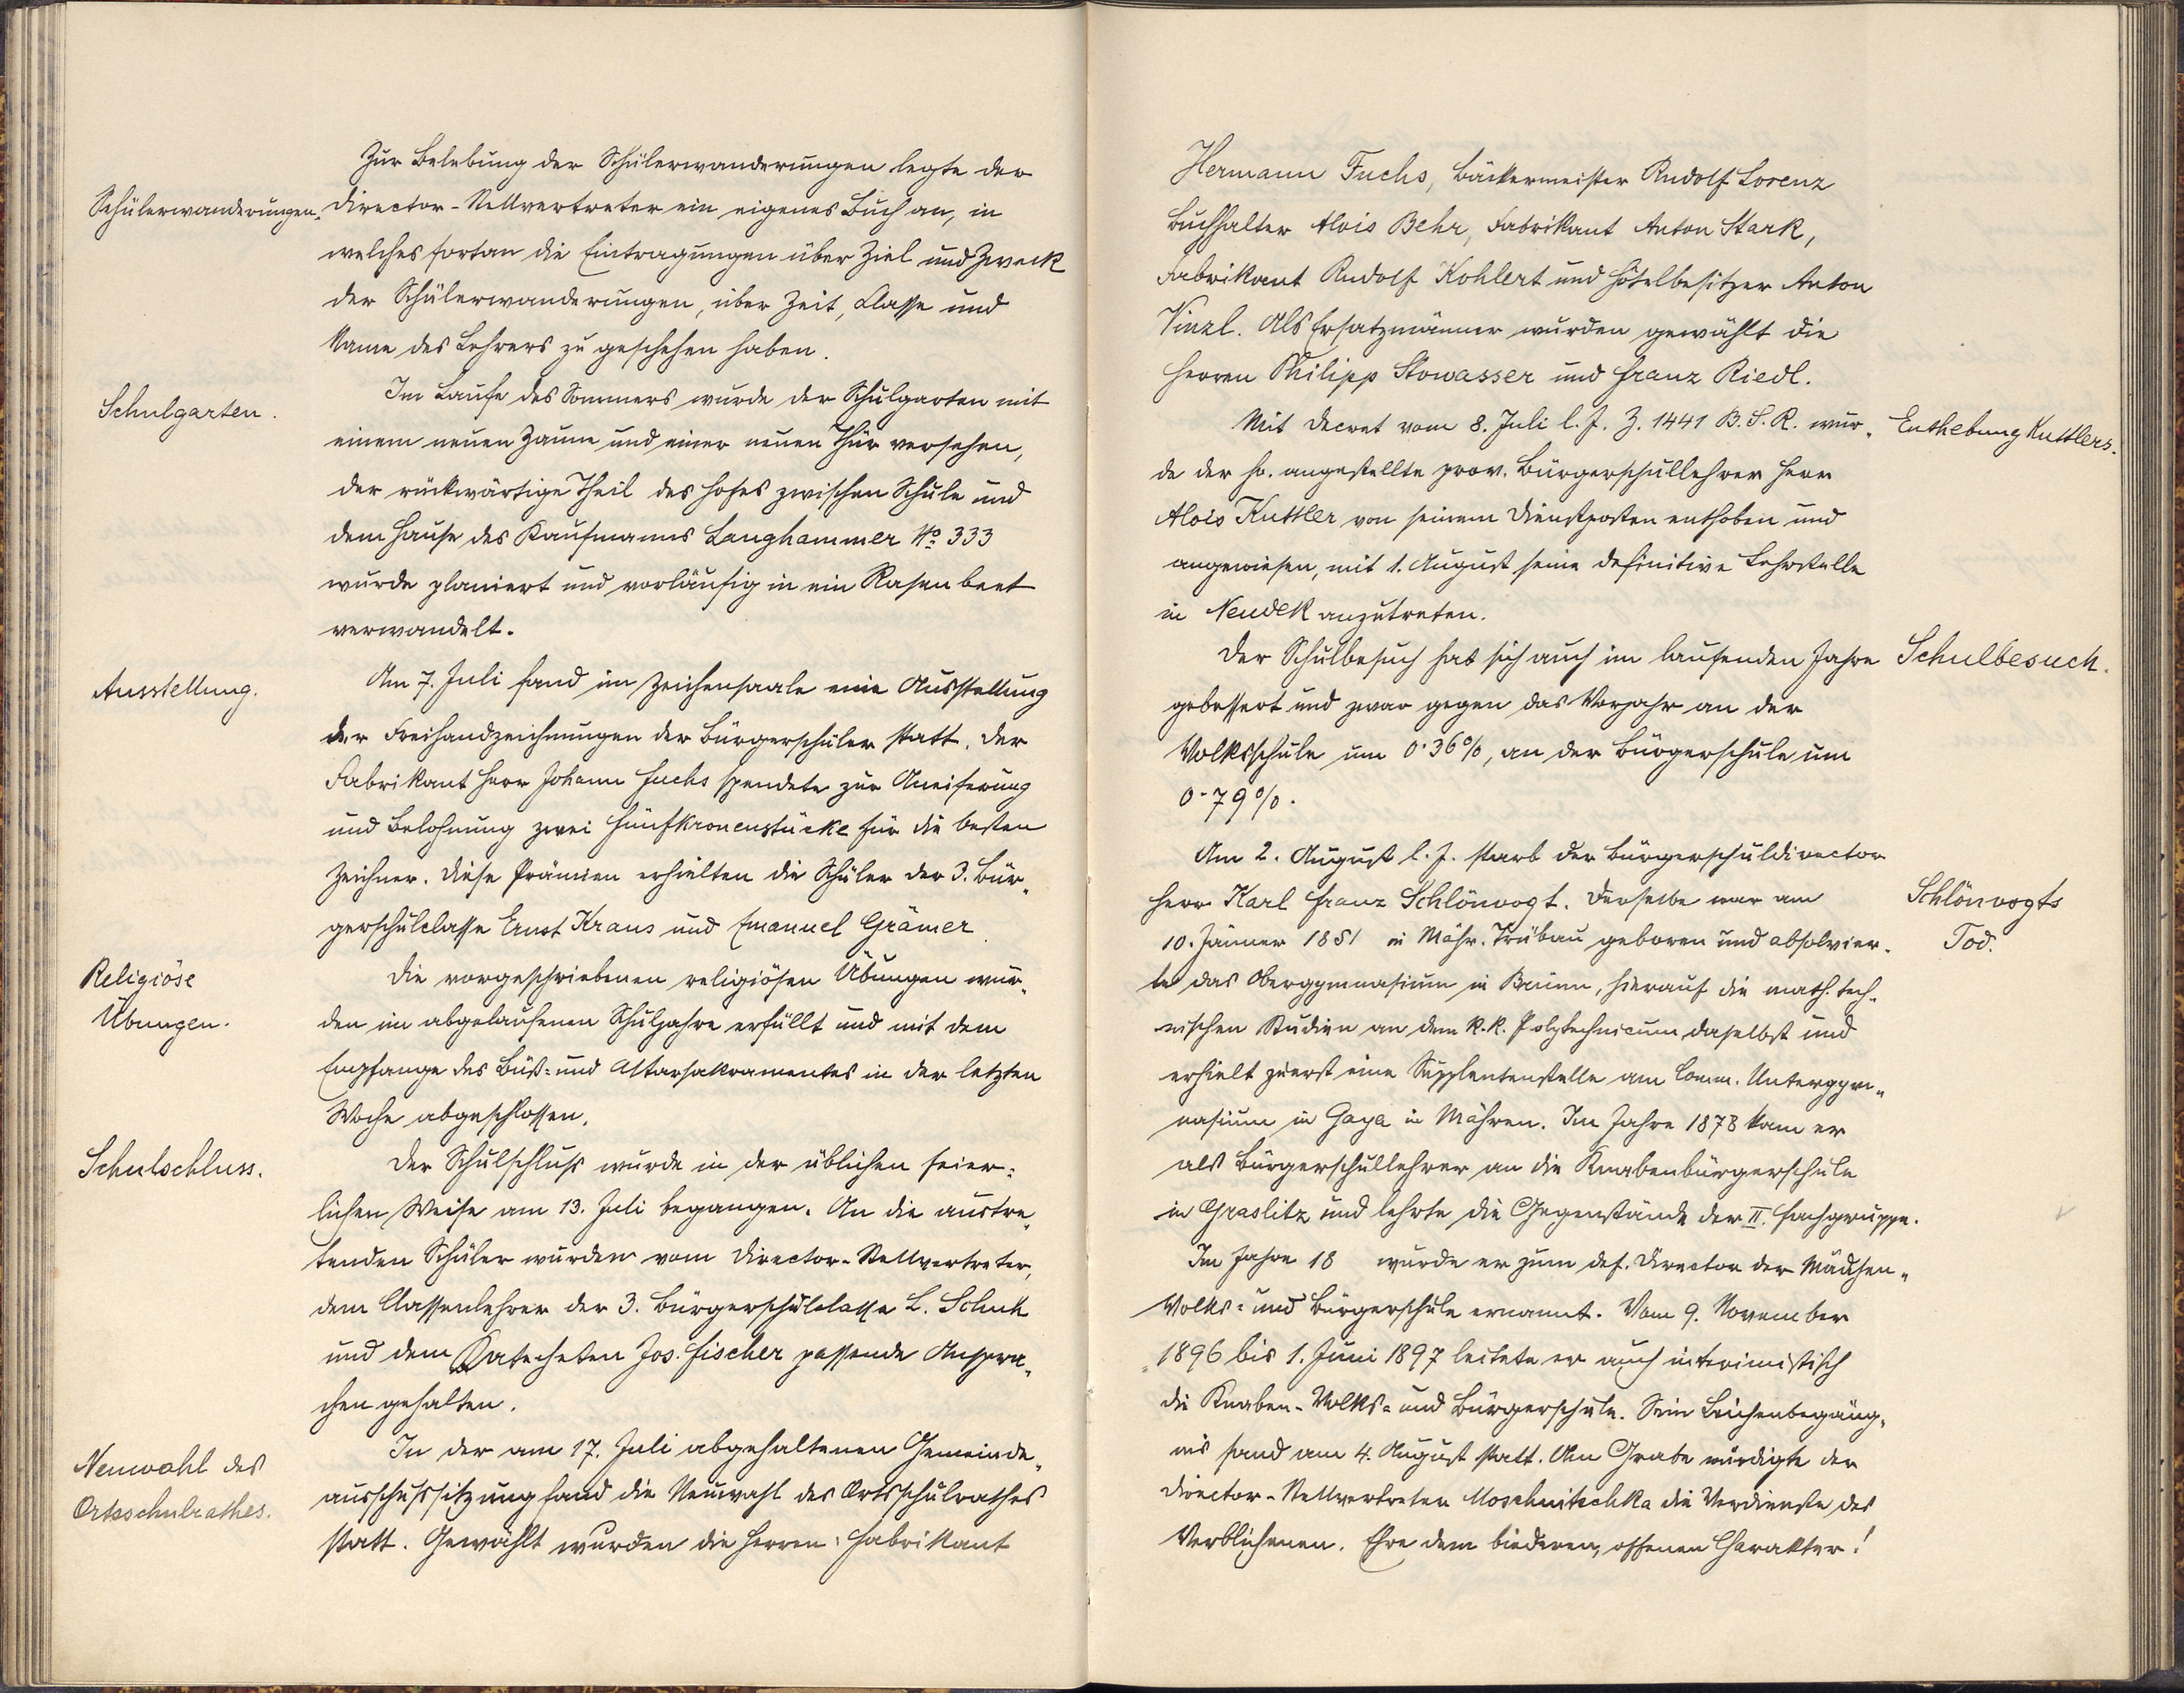 Zur Belebung der Schülerwanderungen legte der
Schülerwanderungen. Director-Stellvertreter ein eigenes Buch an, in
welches fortan die Eintragungen über Ziel und Zweck
der Schülerwanderungen, über Zeit, Classe und
Name des Lehrers zu geschehen haben.
Schulgarten.
Im Laufe des Sommers wurde der Schulgarten mit
einem neuen Zaune und einer neuen Thür versehen,
der rückwärtige Theil des Hofes zwischen Schule und
dem Hause des Kaufmanns Langhammer No 333
wurde planiert und vorläufig in ein Rasenbeet
verwandelt.
Ausstellung.
Am 7. Juli fand im Zeichensaale eine Ausstellung
der Freihandzeichnungen der Bürgerschüler statt. Der
Fabrikant Herr Johann Fuchs spendete zur Aneiferung
und Belohnung zwei Fünfkronenstücke für die besten
Zeichner. Diese Prämien erhielten die Schüler der 3. Bür-
gerschulclasse Ernst Kraus und Emanuel Grämer.
Religiöse
Übungen.
Die vorgeschriebenen religiösen Übungen wur-
den im abgelaufenen Schuljahre erfüllt und mit dem
Empfange des Buß- und Altarsakramentes in der letzten
Woche abgeschlossen.
Schulschluss.
Der Schulschluß wurde in der üblichen feier-
lichen Weise am 13. Juli begangen. An die austre-
tenden Schüler wurden vom Director-Stellvertreter,
dem Classenlehrer der 3. Bürgerschulclasse L. Schuh
und dem Katecheten Jos. Fischer passende Anspra-
chen gehalten.
Neuwahl des
Ortsschulrathes.
In der am 17. Juli abgehaltenen Gemeinde-
ausschußsitzung fand die Neuwahl des Ortsschulrathes
statt. Gewählt wurden die Herren: Fabrikant
Hermann Fuchs, Bäckermeister Rudolf Lorenz
Buchhalter Alois Behr, Fabrikant Anton Stark,
Fabrikant Rudolf Kohlert und Hôtelbesitzer Anton
Vinzl. Als Ersatzmänner wurden gewählt die
Herren Philipp Stowasser und Franz Riedl.
Mit Decret vom 8. Juli l. J. Z. 1441 B. S. R. wur-
Enthebung Kuttlers.
de der hr. angestellte prov. Bürgerschullehrer Herr
Alois Kuttler von seinem Dienstposten enthoben und
angewiesen, mit 1. August seine definitive Lehrstelle
in Neudek anzutreten.
Der Schulbesuch hat sich auch im laufenden Jahre
Schulbesuch.
gebessert und zwar gegen das Vorjahr an der
Volksschule um 0·36%, an der Bürgerschule um
0·79%.
Am 2. August l. J. starb der Bürgerschuldirector
Herr Karl Franz Schlönvogt. Derselbe war am
Schlönvogts
Tod.
10. Jänner 1851 in Mähr. Trübau geboren und absolvier-
te das Obergymnasium in Brünn, hierauf die math. tech-
nischen Studien an dem k.k. Polytechnicum daselbst und
erhielt zuerst eine Supplentenstelle am Comm. Untergym-
nasium in Gaya in Mähren. Im Jahre 1878 kam er
als Bürgerschullehrer an die Knabenbürgerschule
in Graslitz und lehrte die Gegenstände der II. Fachgruppe.
Im Jahre 18 wurde er zum def. Director der Mädchen-
Volks- und Bürgerschule ernannt. Vom 9. November
1896 bis 1. Juni 1897 leitete er auch interimistisch
die Knaben-Volks- und Bürgerschule. Sein Leichenbegäng-
nis fand am 4. August statt. Am Grabe würdigte der
Director-Stellvertreter Moschnitschka die Verdienste des
Verblichenen. Ehre dem biederen, offenen Charakter!